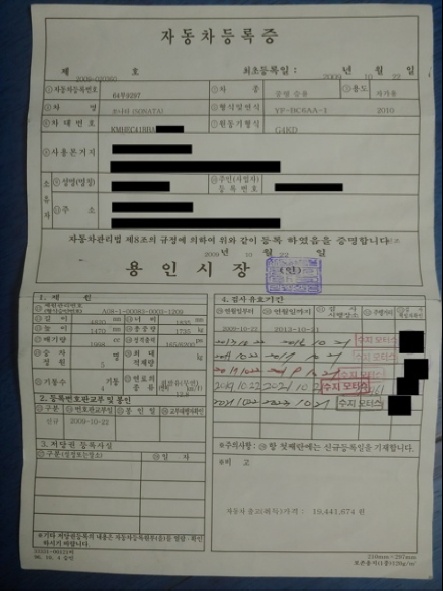 자동차등록증
제 2009-020360 호 최초등록일 : 2009 년 10 월 22 일
①자동차등록번호 64무9297 ②차 종 중형 승용 ③용도 자가용
④차 명 쏘나타 (SONATA) ⑤형식및연식 2010
⑥차대번호 KMHEC41BBA ⑦원동기형식 G4KD
⑧사용본거지
소유자 ⑨성명(명칭) ⑩주민(사업자)등록번호
⑪주 소
자동차관리법 제8조의 규정에 의하여 위와 같이 등록 하였음을 증명합니다.
2009 년 10 월 22 일
용 인 시 장
1. 제 원
제원관리번호(형식승인번호) A08-1-00083-0003-1209
길 이 4820 mm 너 비 1835 mm
높 이 1470 mm 총중량 kg
배기량 1998 cc 정격출력 165/6200
승차정원 5 명 최대적재량 kg
기통수 기통 연료의 종류 휘발유(무연)
2. 등록번호판교부 및 봉인
구분 번호판교부일 봉인일 교부대행자확인
신규 2009-10-22
3. 저당권 등록사실
구분(설정또는말소) 일 자
※기타 저당권등록의 내용은 자동차등록원부(을)를 열람·확인하시기 바랍니다.
4. 검사유효기간
연월일부터 연월일까지 검사시행장소 주행거리 검사책임자확인
2009-10-22 2013-10-21
수지 모터스
수지 모터스
수지 모터스
2019 10 22 2021 10 21 수지 모터스
2021 10 22 2023 10 21 수지 모터스
※주의사항: 항 첫째란에는 신규등록일을 기재합니다.
※비 고
자동차 출고(취득)가격 : 19,441,674 원
210mm×297mm
보존용지(1종)120g/㎡